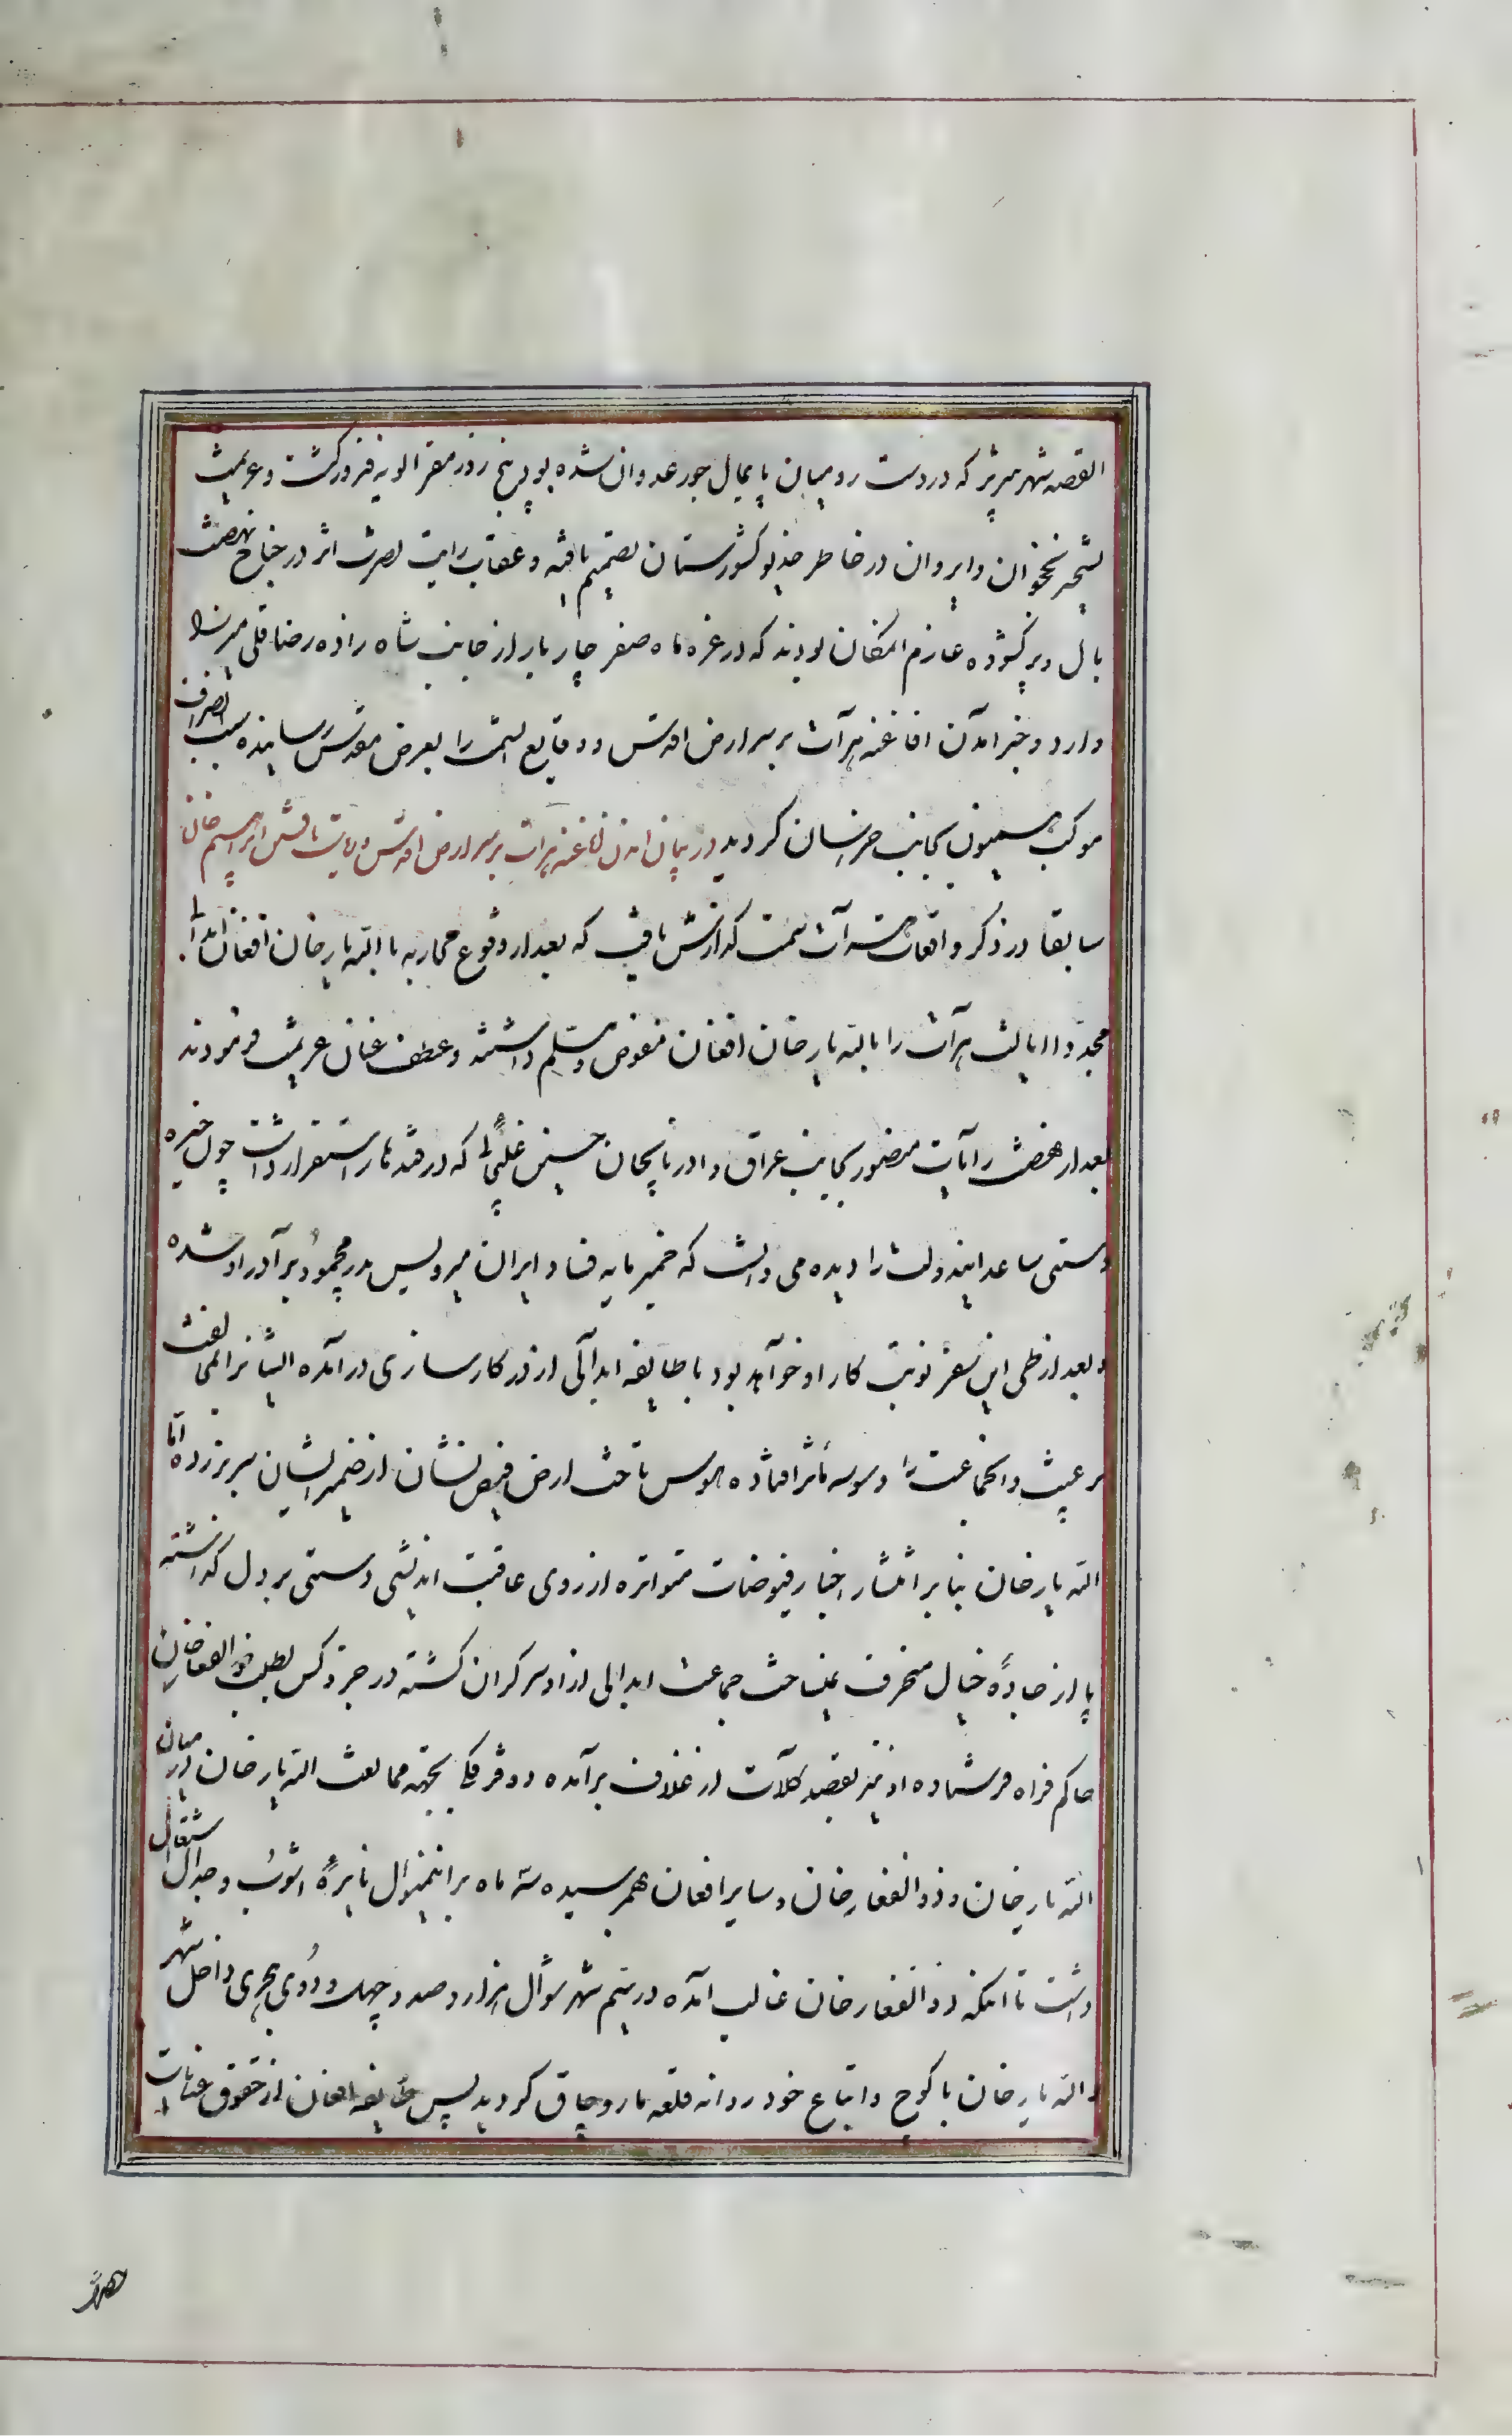 القصه شهر تبریز که در دست رومیان پایمال جور عدوان شده بود پنج روز مقر الویه فیروز کشت و عزیمت
تسخیر نخجوان و ایروان در خاطر خدیو کشورستان تصمیم یافته و عقاب رایت نصرت اثر در جناح نهضت
بال و پر کشوده عازم امکان بودند که در غره ماه صفر چاپار از جانب شاه زاده رضا قلی میرزا
وارد و خبر آمدن افاغنه هرآت بر سر ارض اقدس و وقایع آنسمت را بعرض مقدس رسانیده سبب انصراف
موکب همیون بجانب خراسان کردید در بیان آمدن افاغنه هرات بر سر ارض اقدس و شکست یافتن ابراهیم خان
سابقا در ذکر واقعات هرآت سمت کذارش یافت که بعد از وقوع محاربه با الله یار خان افغان ابدالی
مجددا ایالت هرآت را بالله یار خان افغان مفوض و مسلم داشته و عطف عنان عزیمت فرمودند
بعد از نهضت رآیات منصور بجانب عراق و ادربایجان حسین غلیجائی که در قندهار استقرار داشت چون خیره
دستی ساعد ایندولت را دیده می دانست که خمیر مایه فساد ایران میرویس پدر محمود برآدر او شده
و بعد از طی این سفر نوبت کار او خوآهد بود با طایفه ابدآلی از در کارسازی در آمده ایشانرا بمخالفت
ترغیب و آنجماعت را وسوسه مأثر افتاده هوس تاخت ارض فیض نشان از ضمیر ایشان سر بر زده امّا
الله یار خان بنا بر انتشار اخبار فیوضات متواتره از روی عاقبت اندیشی دستی بر دل کذاشته
پا از جادّه خیال منحرف نمیساخت جماعت ابدالی از او سر کران کشته در جزو کس بطلب ذو الفقار خان
حاکم فراه فرستاده او نیز بقصد کلآت از غلاف برآمده و وفرقه بجهه ممانعت الله یار خان در میان
الله یار خان و ذو الفقار خان و سایر افغان بهمرسیده سه ماه بر اینمنوال نایرهٔ آشوب و جدال اشتعال
داشت تا اینکه ذو الفقار خان غالب آمده در بیستم شهر شوآل هزار و صد و چهل و دوی هجری داخل شهر
و الله یار خان با کوچ و اتباع خود روانه قلعه ماروچاق کردید پس طایفه افغان از حقوق عنایات